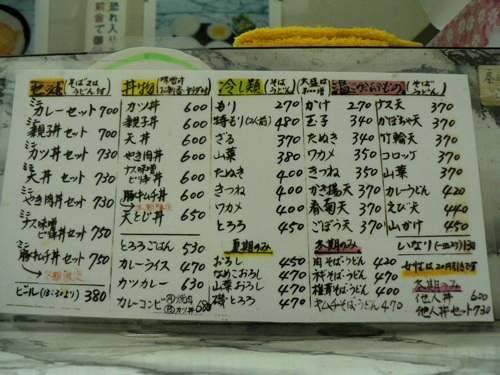 恐れ入り
料金で
セット(そば又はうどん付)
ミニカレーセット 700
ミニ親子丼セット 700
ミニカツ丼セット 730
ミニ天丼セット 730
ミニやき肉丼セット 730
ミニナス味噌ピリ辛丼セット 750
ミニ豚キムチ丼セット 750
冬期限定
ビール(15:30より) 380
丼物
カツ丼 600
親子丼 600
天丼 600
やき肉丼 600
ナス味噌ピリ辛丼 600
豚キムチ丼 600
冬期限定
天とじ丼 650
とろろごはん 530
カレーライス 470
カツカレー 630
カレーコンビ 焼肉 カツ丼 680
冷し類(そばうどん)
大盛は
もり 270
特もり(2人前) 480
ざる 370
山菜 380
たぬき 400
きつね 400
ワカメ 400
とろろ 450
夏期のみ
おろし 450
なめこおろし 470
山菜おろし 470
磯とろろ 470
温かいもの(そばうどん)
かけ 270
玉子 340
たぬき 340
ワカメ 350
きつね 350
かき揚天 370
春菊天 370
ごぼう天 370
冬期のみ
肉そば・うどん 420
ネギそば・うどん 400
椎茸そば・うどん 400
キムチそば・うどん 470
ナス天 370
かぼちゃ天 370
竹輪天 370
コロッケ 370
山菜 370
カレーうどん 420
えび天 440
山かけ 450
いなり(一皿2ケ)130
女性は20円引きです
冬期のみ
他人丼 600
他人丼セット 730